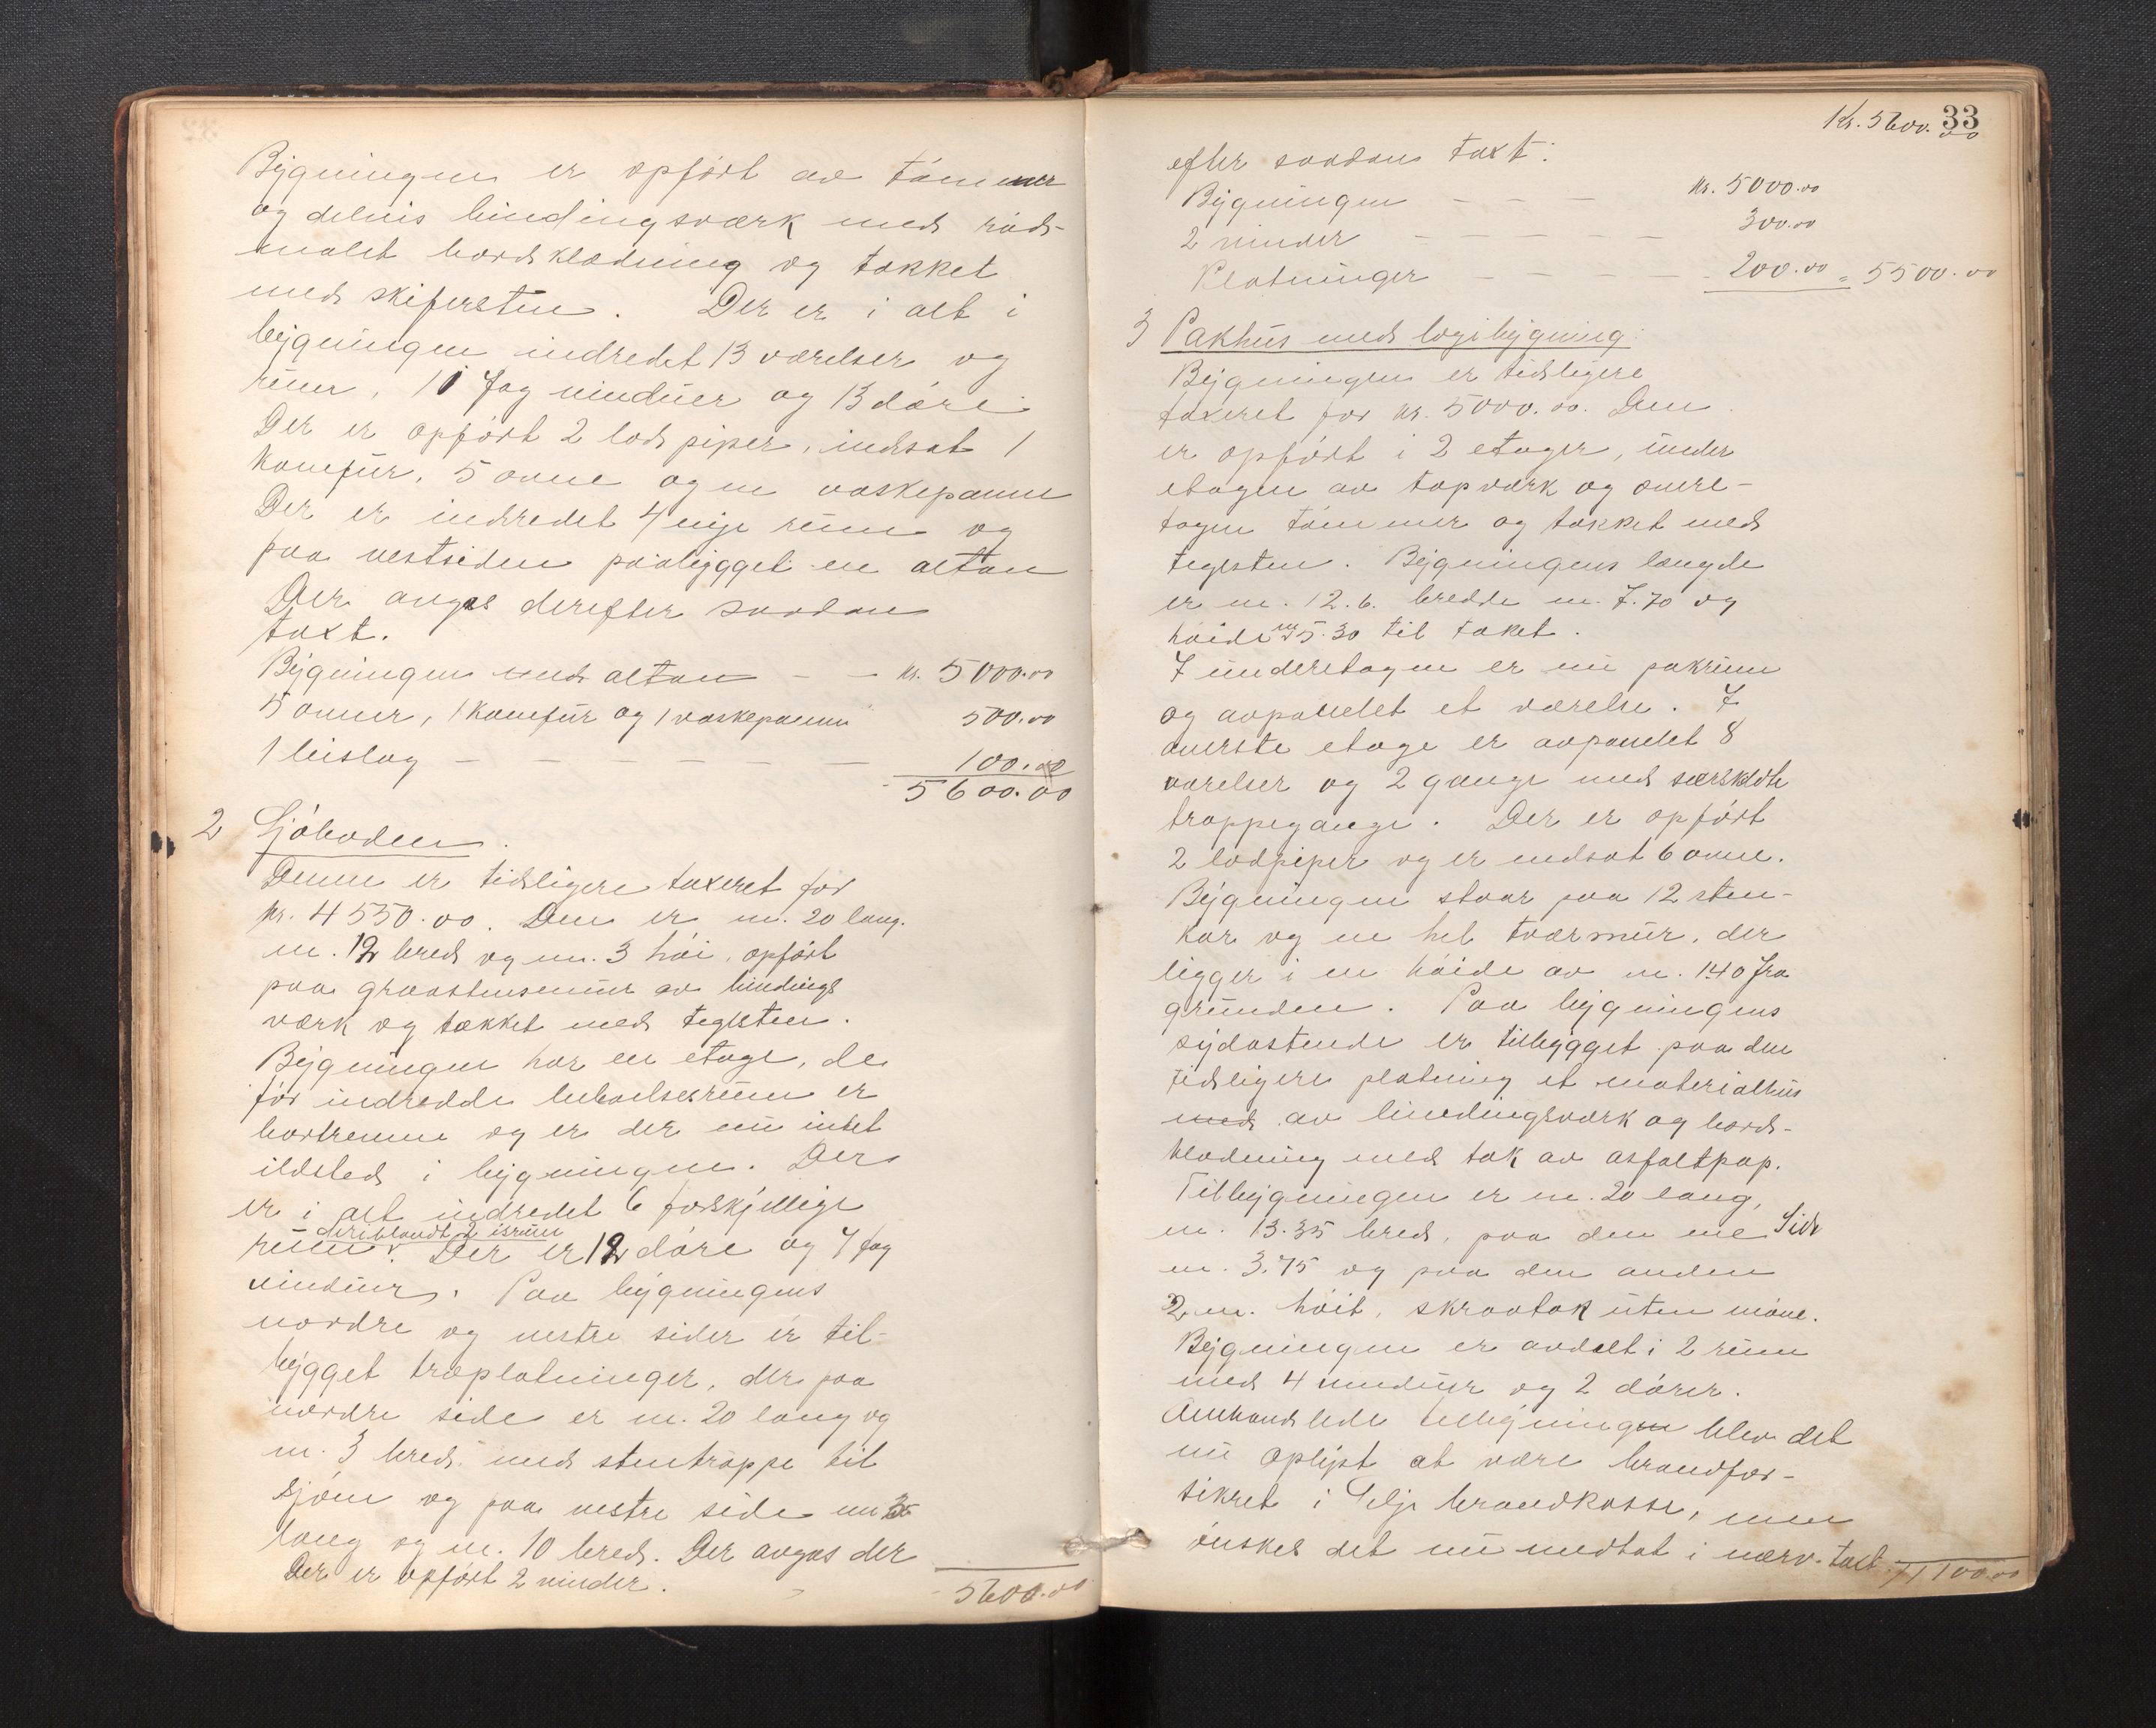 Bygningen er opført av tømmer
og delvis bindingsværk med rød-
malet bordklædning og tækket
med skifersten. Der er i alt i
bygningen indredet 13 værelser og
rum, 11 fag vinduer og 13 døre.
Der er opført 2 lodpiper, indsat 1
komfur, 5 ovne og en vaskepanne
Der er indredet 4 nye rum og
paa vestsiden paabygget en altan
Der avgas derefter saadan
taxt.
Bygningen med altan - - kr. 5000.00
5 ovner, 1 komfur og 1 vaskepanne 500.00
1 bislag - - - - - - 100.00
5600.00
2 Sjøboden.
Denne er tidligere taxeret for
kr. 4550.00. Den er m. 20 lang.
m. 12 bred og m. 3 høi, opført
paa graastensmur av bindings
værk og tækket med teglsten.
Bygningen har en etage, de
før indredde beboelsesrum er
borttenne og er der nu intet
ildsted i bygningen. Der
er i alt indredet 6 forskjellige
deriblandt 2 isrum
rum. Der er 12 døre og 4 fag
vinduer. Paa bygningens
nordre og vestre sider er til-
bygget træplatninger, der paa
nordre side er m. 20 lang og
m. 3 bred med stentrappe til
sjøen og paa vestre side m
lang og m. 10 bred. Der avgas der
Der er opført 2 vinder.
5600.00
33
Kr. 5600.00
efter saadan taxt:
Bygningen - - - kr. 5000.00
2 vinder - - - - - 300.00
Platninger - - - - 200.00 = 5500.00
3 Pakhus med logibygning.
Bygningen er tidligere
taxeret for kr. 5000.00. Den
er opført i 2 etager, under
etagen av tapværk og overe-
tagen tømmer og tækket med
teglsten. Bygningens længde
er m. 12.6. bredde m. 7.70 og
høide m 5.30 til taket.
I underetagen er nu pakrum
og avpanelet et værelse. I
øverste etage er avpanelet 8
værelser og 2 gange med særskilte
trappegange. Der er opført
2 lodpiper og er indsat 6 ovne.
Bygningen staar paa 12 sten-
kar og en hel tværmur, der
ligger i en høide av m. 1.40 fra
grunden. Paa bygningens
sydøstende er tilbygget paa den
tidligere platning et materialhus
med av bindingsværk og bord-
klædning med tak av asfaltpap.
Tilbygningen er m. 20 lang,
m. 13.35 bred, paa den ene Side
m. 3.75 og paa den anden
2 m. høit, skraatak uten møne.
Bygningen er avdelt i 2 rum
med 4 vinduer og 2 dører.
Omhandlede tilbygningen blev det
nu oplyst at være brandfor-
sikret i Selje brandkasse, men
ønskes det nu medtat i nærv. taxt.
11100.00